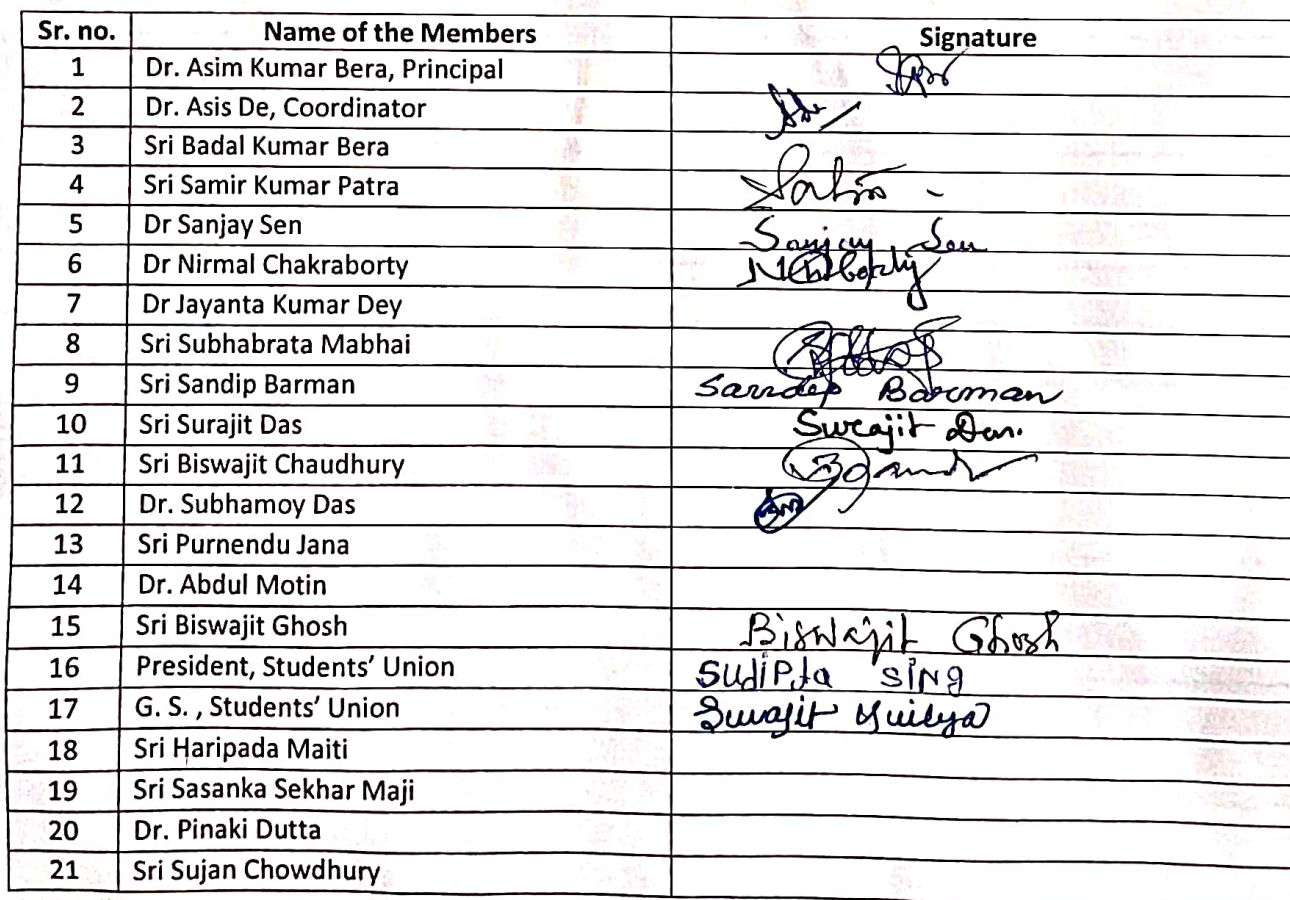 Sr. no. Name of the Members Signature
1 Dr. Asim Kumar Bera, Principal
2 Dr. Asis De, Coordinator
3 Sri Badal Kumar Bera
4 Sri Samir Kumar Patra
5 Dr Sanjay Sen Sanjay Sen
6 Dr Nirmal Chakraborty
7 Dr Jayanta Kumar Dey
8 Sri Subhabrata Mabhai
9 Sri Sandip Barman Sandip Barman
10 Sri Surajit Das Surajit Das.
11 Sri Biswajit Chaudhury
12 Dr. Subhamoy Das
13 Sri Purnendu Jana
14 Dr. Abdul Motin
15 Sri Biswajit Ghosh Biswajit Ghosh
16 President, Students' Union Sudipta Sing
17 G. S. , Students' Union
18 Sri Haripada Maiti
19 Sri Sasanka Sekhar Maji
20 Dr. Pinaki Dutta
21 Sri Sujan Chowdhury